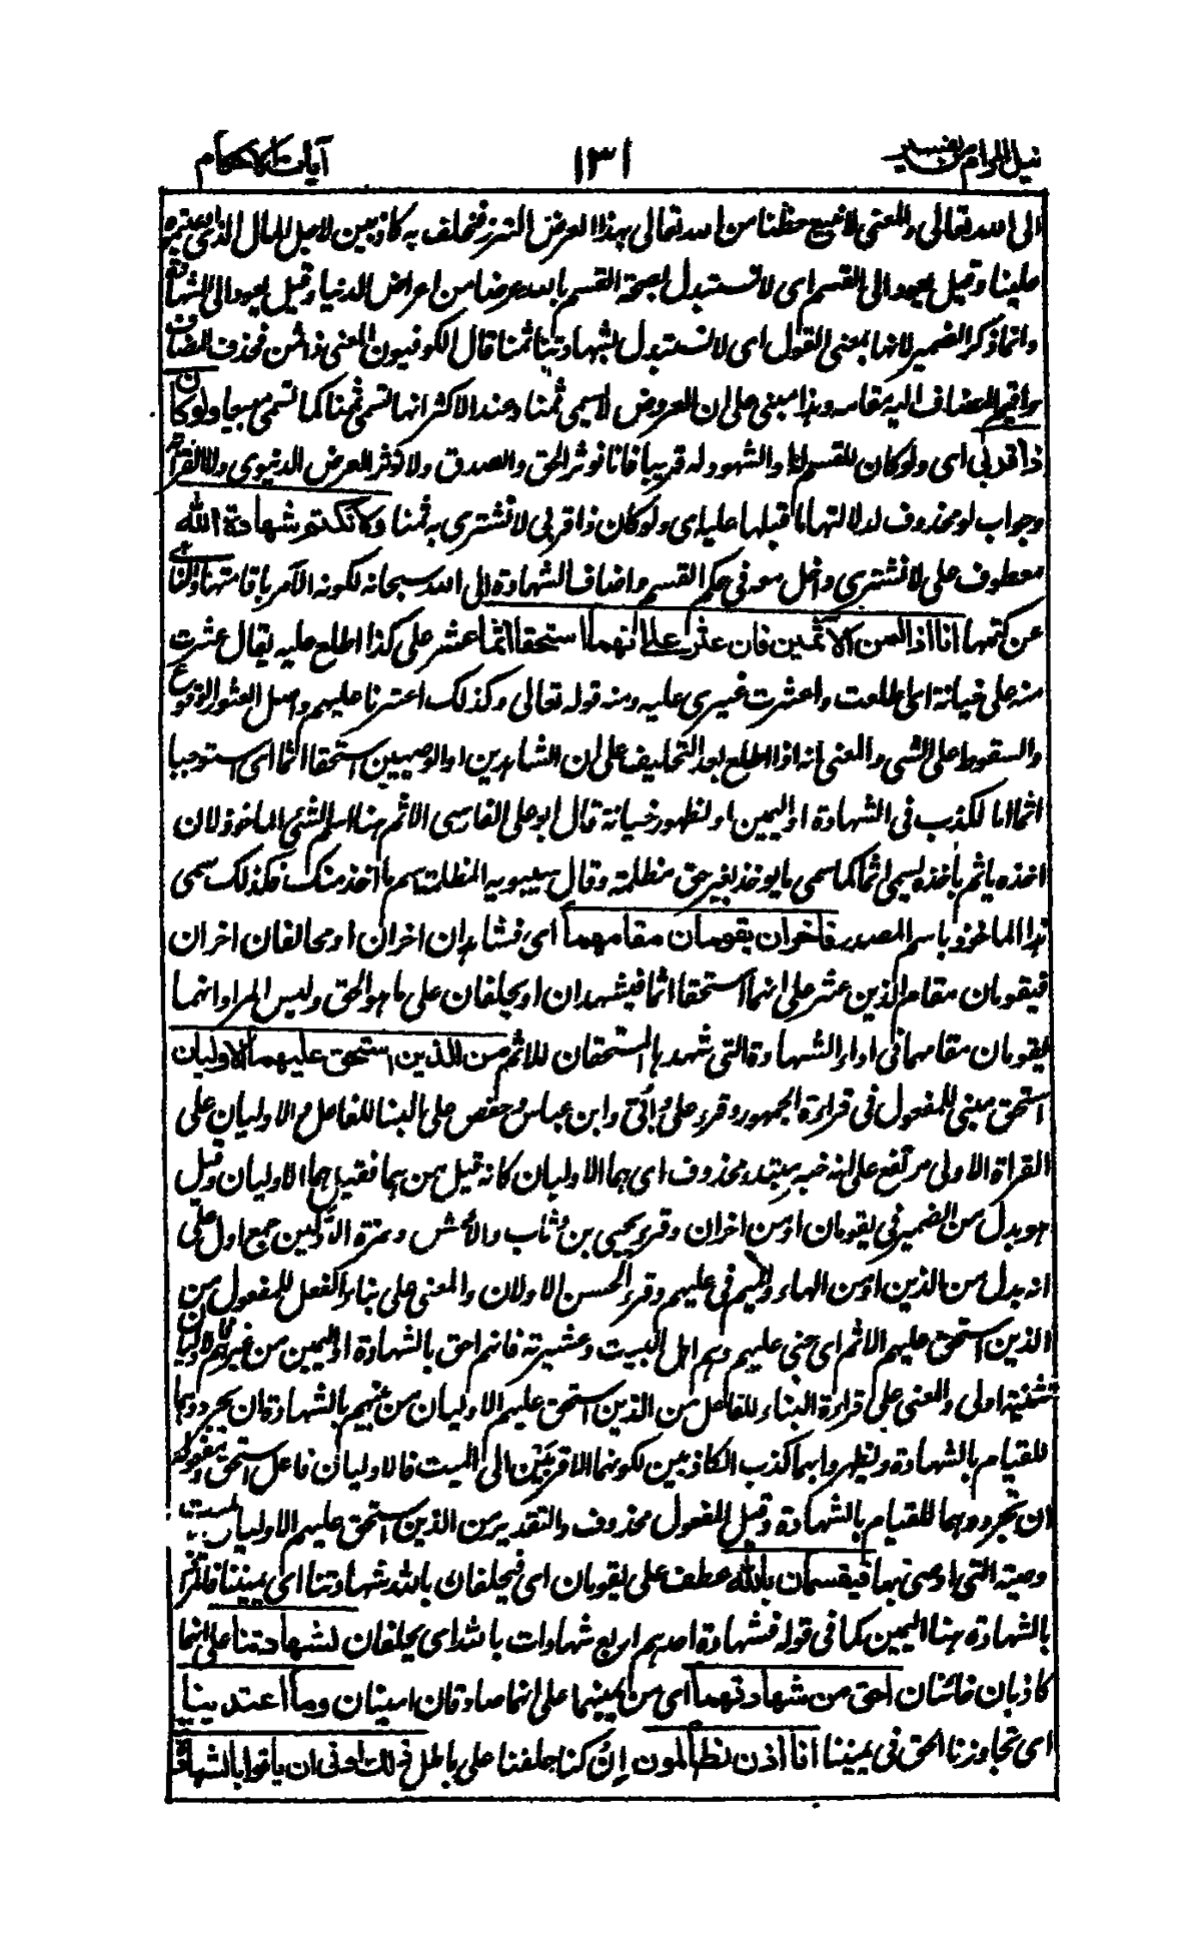 نيل المرام من تفسير
١٣١
آيات الاحكام
الى الله تعالى والمعنى لا نبيع حظنا من الله تعالى بهذا العرض النزر فنحلف به كاذبين لاجل المال الذى ادعيتموه
علينا وقيل يعود الى القسم اى لا نستبدل بصحة القسم بالله عرضا من اعراض الدنيا وقيل يعود الى الشهادة
وانما ذكر الضمير لانها بمعنى القول اى لا نستبدل بشهادتنا ثمنا قال الكوفيون المعنى ذا ثمن فحذف المضاف
واقيم المضاف اليه مقامه وهذا مبنى على ان العروض لا يسمى ثمنا وعند الاكثر انها تسمى ثمنا كما تسمى مبيعا ولو كان
ذا قربى اى ولو كان المقسم له او المشهود له قريبا فانا نوثر الحق والصدق ولا نوثر العرض الدنيوى ولا القرابة
وجواب لو محذوف لدلالة ما قبلها عليه اى ولو كان ذا قربى لا نشترى به ثمنا ولا نكتم شهادة الله
معطوف على لا نشترى داخل معه فى حكم القسم واضاف الشهادة الى الله سبحانه لكونه الآمر باقامتها والناهى
عن كتمها انا اذا لمن الآثمين فان عثر على انهما استحقا اثما عثر على كذا اطلع عليه يقال عثرت
منه على خيانة اى اطلعت واعثرت غيرى عليه ومنه قوله تعالى وكذلك اعثرنا عليهم واصل العثور الوقوع
والسقوط على الشى والمعنى انه اذا اطلع بعد التحليف على ان الشاهدين او الوصيين استحقا اثما اى استوجبا
اثما اما لكذب فى الشهادة او اليمين او لظهور خيانة قال ابو على الفارسى الاثم هنا اسم الشئ الماخوذ لان
اخذه ياثم باخذه يسمى اثما كما سمى ما يوخذ بغير حق مظلمة وقال سيبويه المظلمة اسم ما اخذ منك فكذلك سمى
هذا الماخوذ باسم المصدر فاخران يقومان مقامهما اى فشاهدان اخران او حالفان اخران
فيقومان مقام الذين عثر على انهما استحقا اثما فيشهدان او يحلفان على ما هو الحق وليس المراد انهما
يقومان مقامهما فى اداء الشهادة التى شهد بها المستحقان للاثم من الذين استحق عليهما الاوليان
استحق مبنى للمفعول فى قراءة الجمهور وقرء على وابى وابن عباس وحفص على البنا للفاعل والاوليان على
القراة الاولى مرتفع على انه خبر مبتدء محذوف اى هما الاوليان كانه قيل من هما فقيل هما الاوليان وقيل
هو بدل من الضمير فى يقومان او من اخران وقرء يحيى بن وثاب والاعمش وحمزة الاولين جمع اول على
انه بدل من الذين او من الهاء والميم فى عليهم وقرء الحسن الاولان والمعنى على بناء الفعل للمفعول من
الذين استحق عليهم الاثم اى جنى عليهم وهم اهل البيت وعشيرته فانهم احق بالشهادة او اليمين من غيرهم فالاوليان
تثنية اولى والمعنى على قراءة البناء للفاعل من الذين استحق عليهم الاوليان من بينهم بالشهادة ان يجردوهما
للقيام بالشهادة ويظهروا بهما كذب الكاذبين لكونهما الاقربين الى الميت فالاوليان فاعل استحق ومفعوله
ان يجردوهما للقيام بالشهادة وقيل المفعول محذوف والتقدير من الذين استحق عليهم الاوليان بالميت
وصيته التى اوصى بها فيقسمان بالله عطف على يقومان اى فيحلفان بالله شهادتنا اى يميننا فالمراد
بالشهادة هنا اليمين كما فى قوله فشهادة احدهم اربع شهادات بالله اى يحلفان لشهادتنا على انهما
كاذبان خائنان احق من شهادتهما اى من يمينهما على انهما صادقان امينان وما اعتدينا
اى تجاوزنا الحق فى يميننا انا اذن لمن الظالمون ان كنا حلفنا على باطل ذلك ادنى ان ياتوا بالشهادة